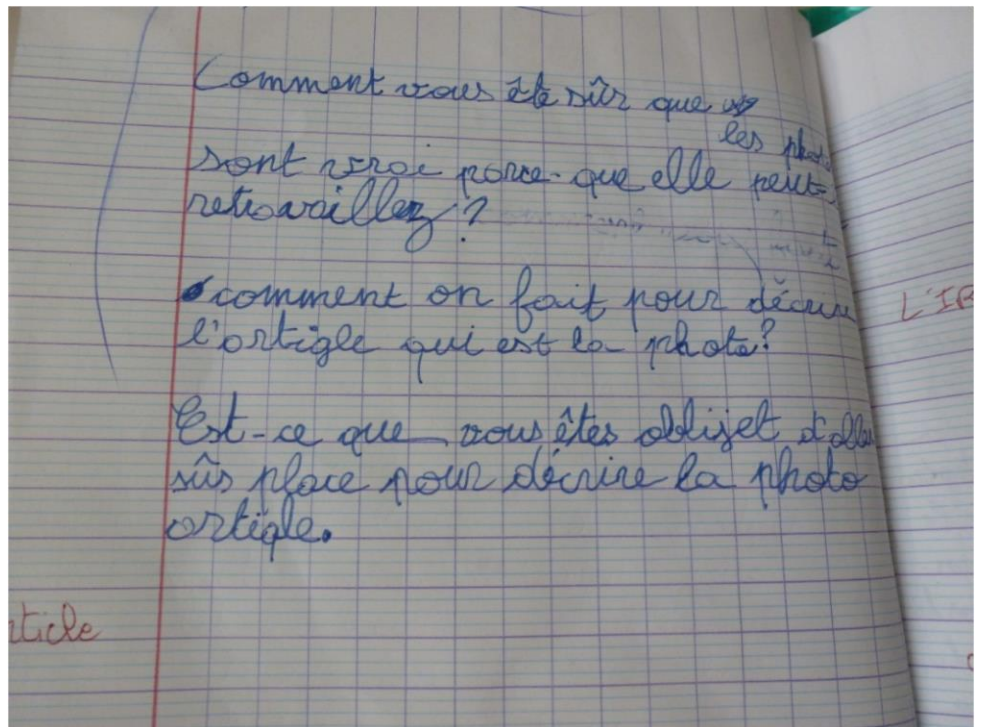 Comment vous ête sûr que
les photo
sont vrai parce-que elle peut
retravaillez ?
comment on fait pour décrire
l'artigle qui est la photo?
Est-ce que vous êtes oblijet d'aller
sûs place pour décrire la photo
artigle.
rticle
L'IR